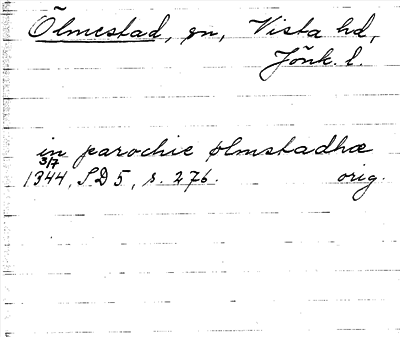 Ölmestad, sn, Vista hd,
Jönk. l.
in parochie ølmstadhæ
3/7
1344, SD 5, s. 276. orig.